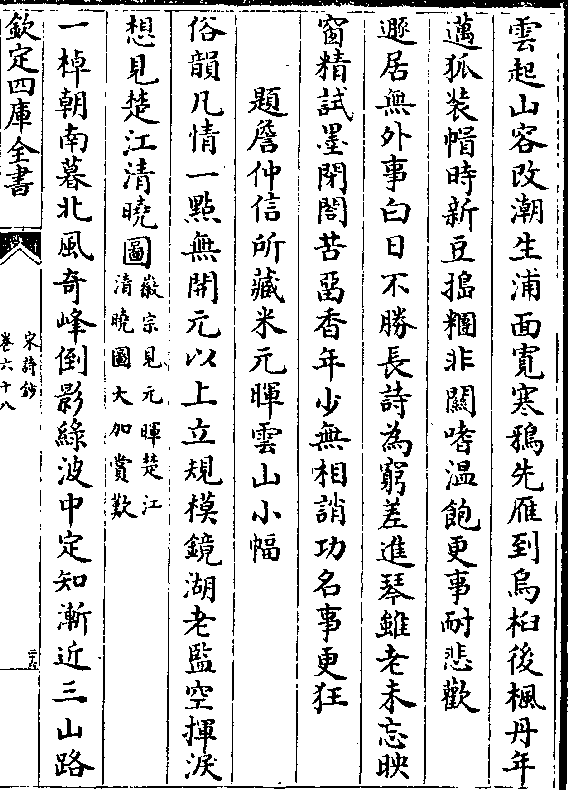 雲起山容改潮生浦面寛寒鴉先雁到烏桕後楓丹年
邁狐装帽時新豆搗糰非關嗜温飽更事耐悲歡
遯居無外事白日不勝長詩為窮差進琴雖老未忘映
窗精試墨閉閤苦留香年少無相誚功名事更狂
題詹仲信所藏米元暉雲山小幅
俗韻凡情一點無開元以上立規模鏡湖老監空揮淚
想見楚江清曉圖徽宗見元暉楚江
清曉圖大加賞歎
一棹朝南暮北風奇峰倒影緑波中定知漸近三山路
欽定四庫全書
宋詩鈔
卷六十八